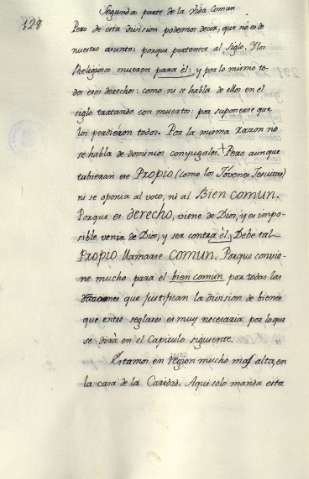 128
Segunda parte de la Vida Comun
Pero de esta division podemos decir, que no es de
nuestro asunto: porque pertenece al siglo. Y los
Religiosos mueren para él: y por lo mismo to-
dos esos derechos: como ni se habla de ellos en el
siglo tratando con muerto: por suponerse que
los perdieron todos. Por la misma razon no
se habla de dominios conyugales. Pero aunque
tubieran ese Propio (como los Jovenes Jesuitas)
ni se oponia al voto, ni al Bien comun.
Porque es derecho, viene de Dios, y es impo-
sible venir de Dios, y ser contra él. Debe tal
Propio llamarse comun. Porque convie-
ne mucho para el bien comun por todas las
razones que justifican la division de bienes
que entre seglares es muy necesaria por lo que
se dirá en el Capitulo siguiente.
Estamos en region mucho mas alta, en
la casa de la Caridad. Aqui solo manda esta